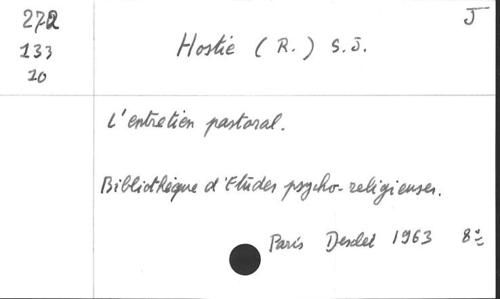 272 J
133 Hostie (R.) S.J.
10
L'entretien pastoral.
Bibliothèque d'Etudes psycho-religieuses.
Paris Desclet 1963 8º